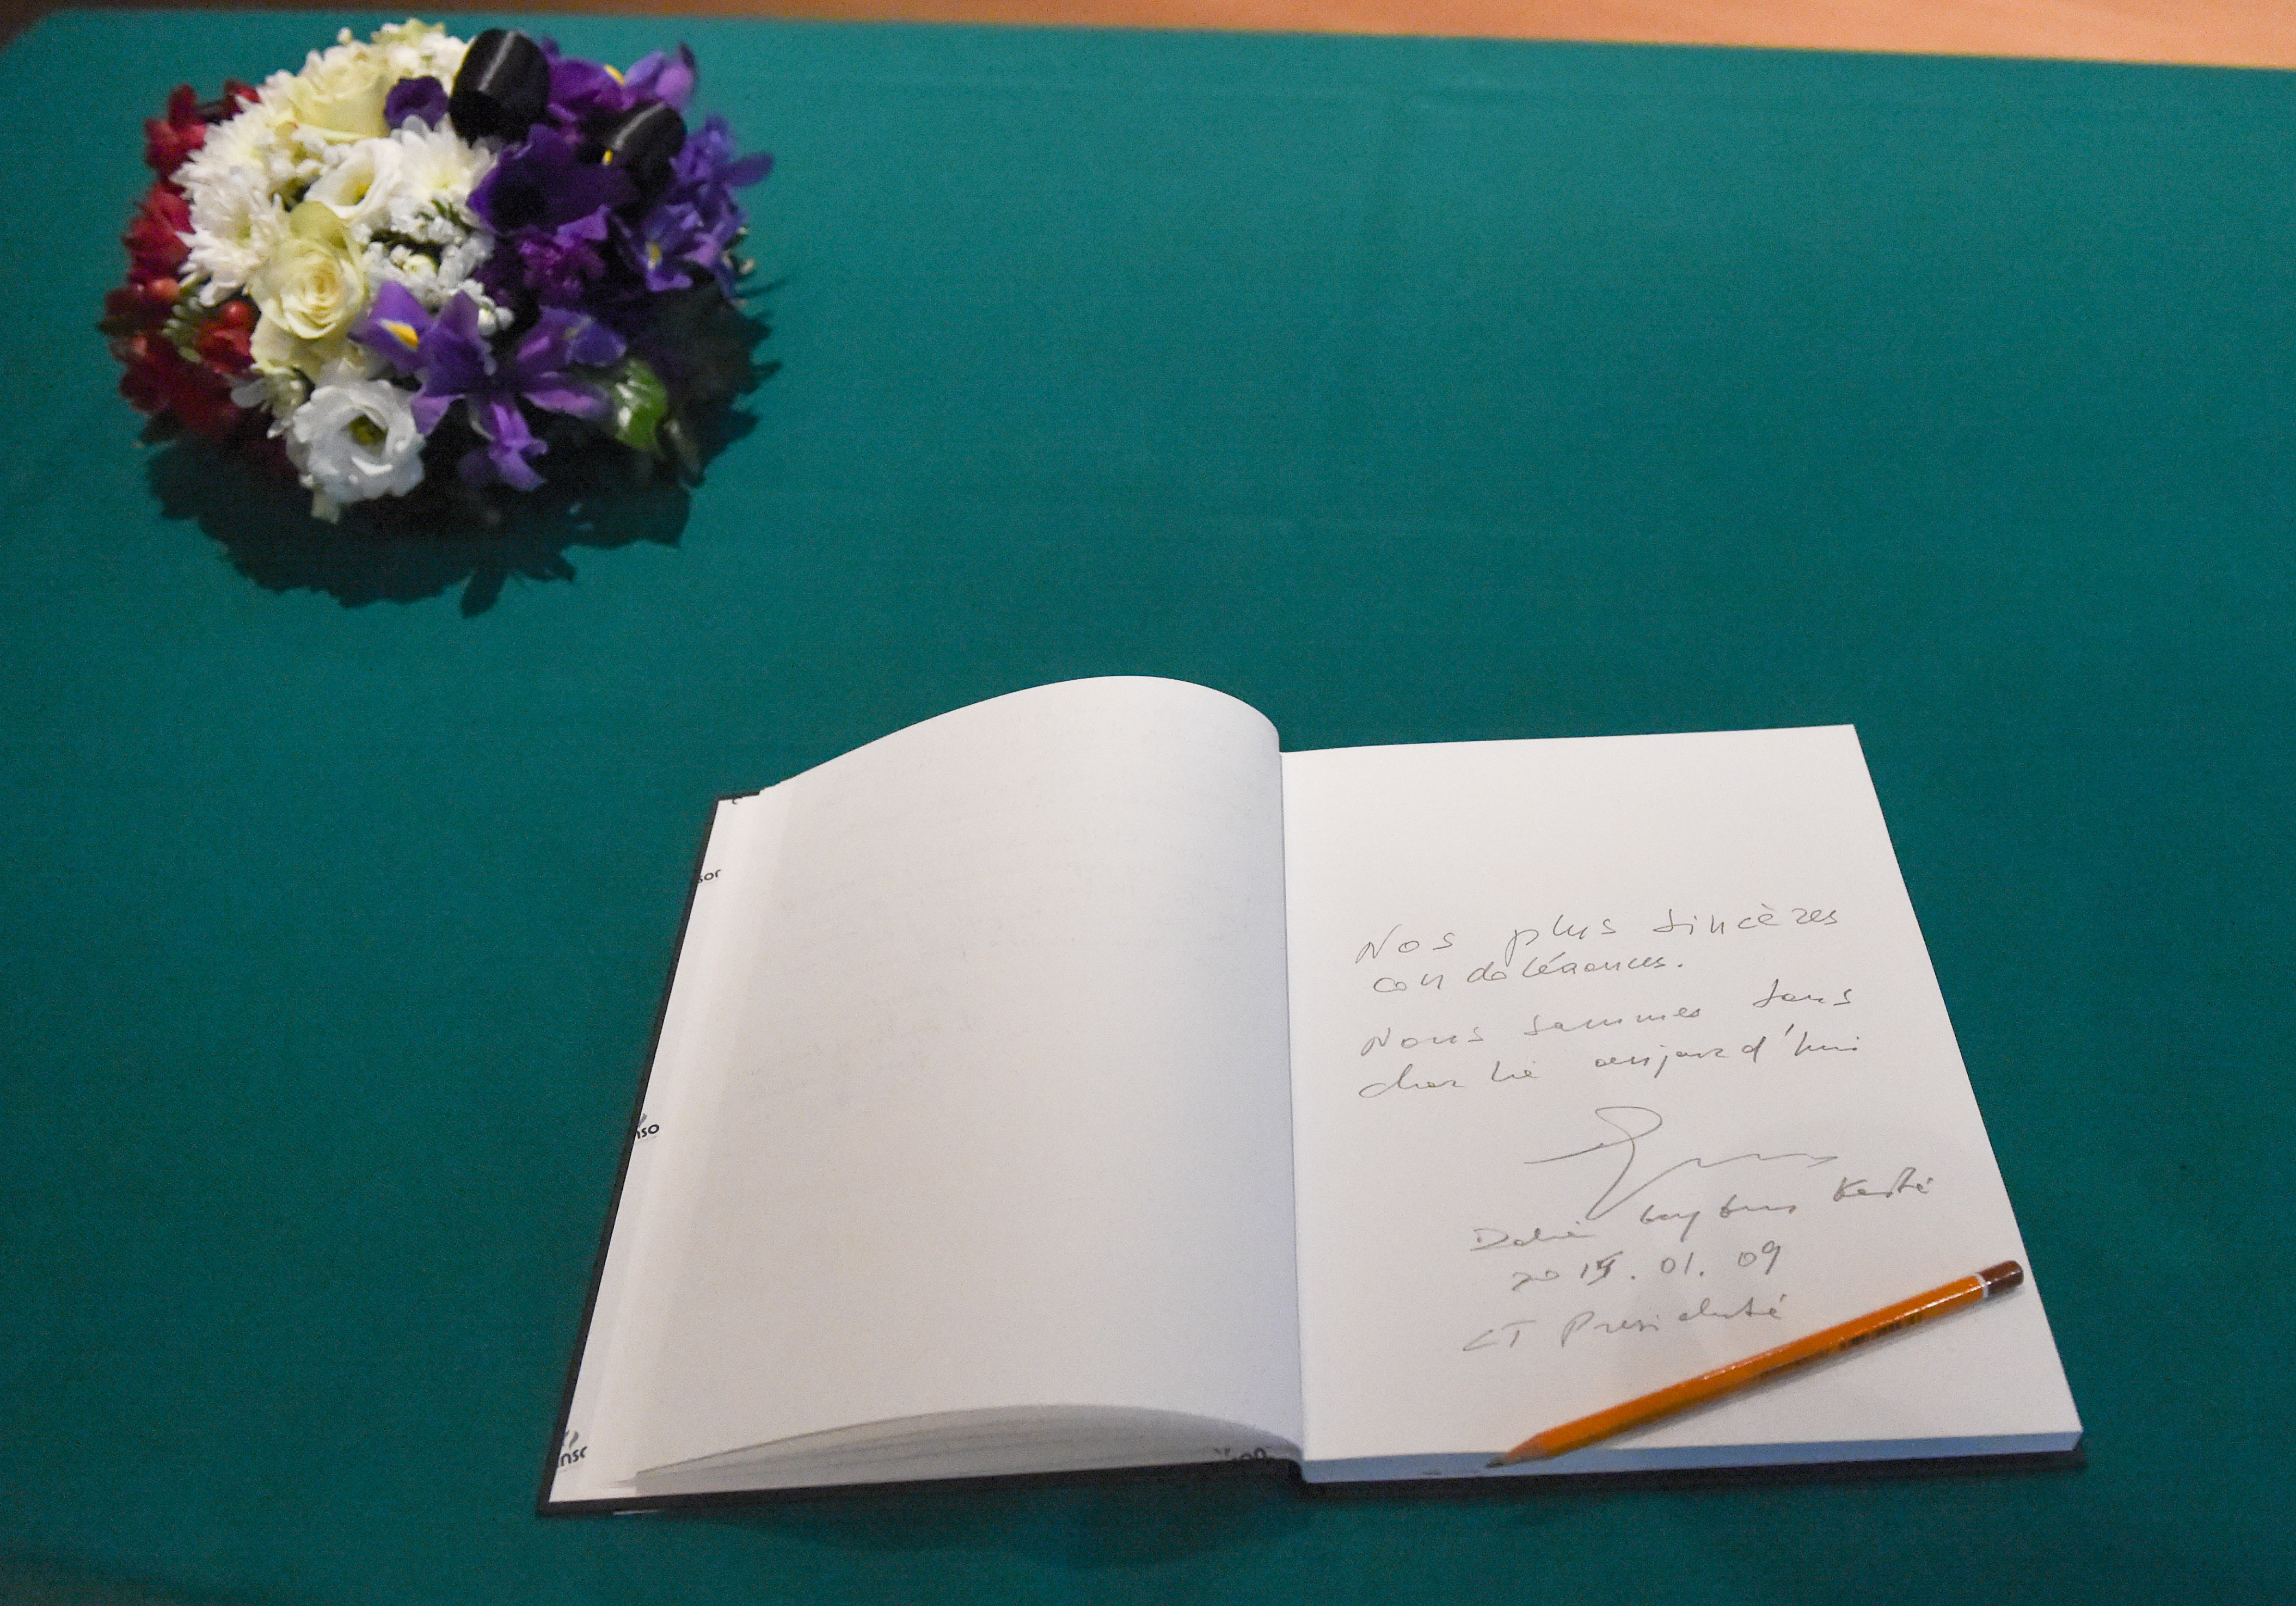 Nos plus sincères
condoléances.
Nous sommes tous
charlie aujourd'hui
Dalia Grybauskaitė
2015.01.09
LT Prezidentė
sor
nso
nsc